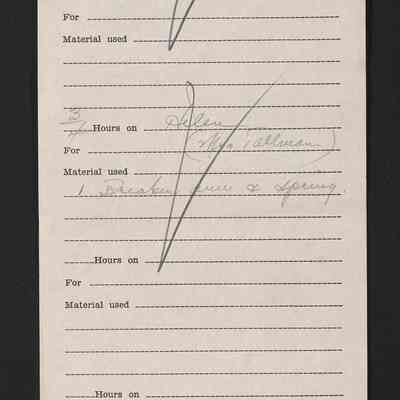 For
Material used
3/4 Hours on Helen
For (Mrs Tallman)
Material used
1 Breaker arm & Spring.
Hours on
For
Material used
Hours on